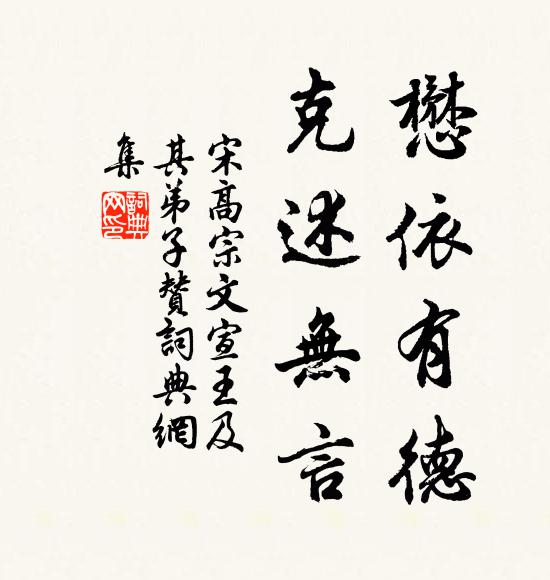 懋依有德
克述無言
宋高宗文宣王及
其弟子贊詞典網
集
詞典
网印